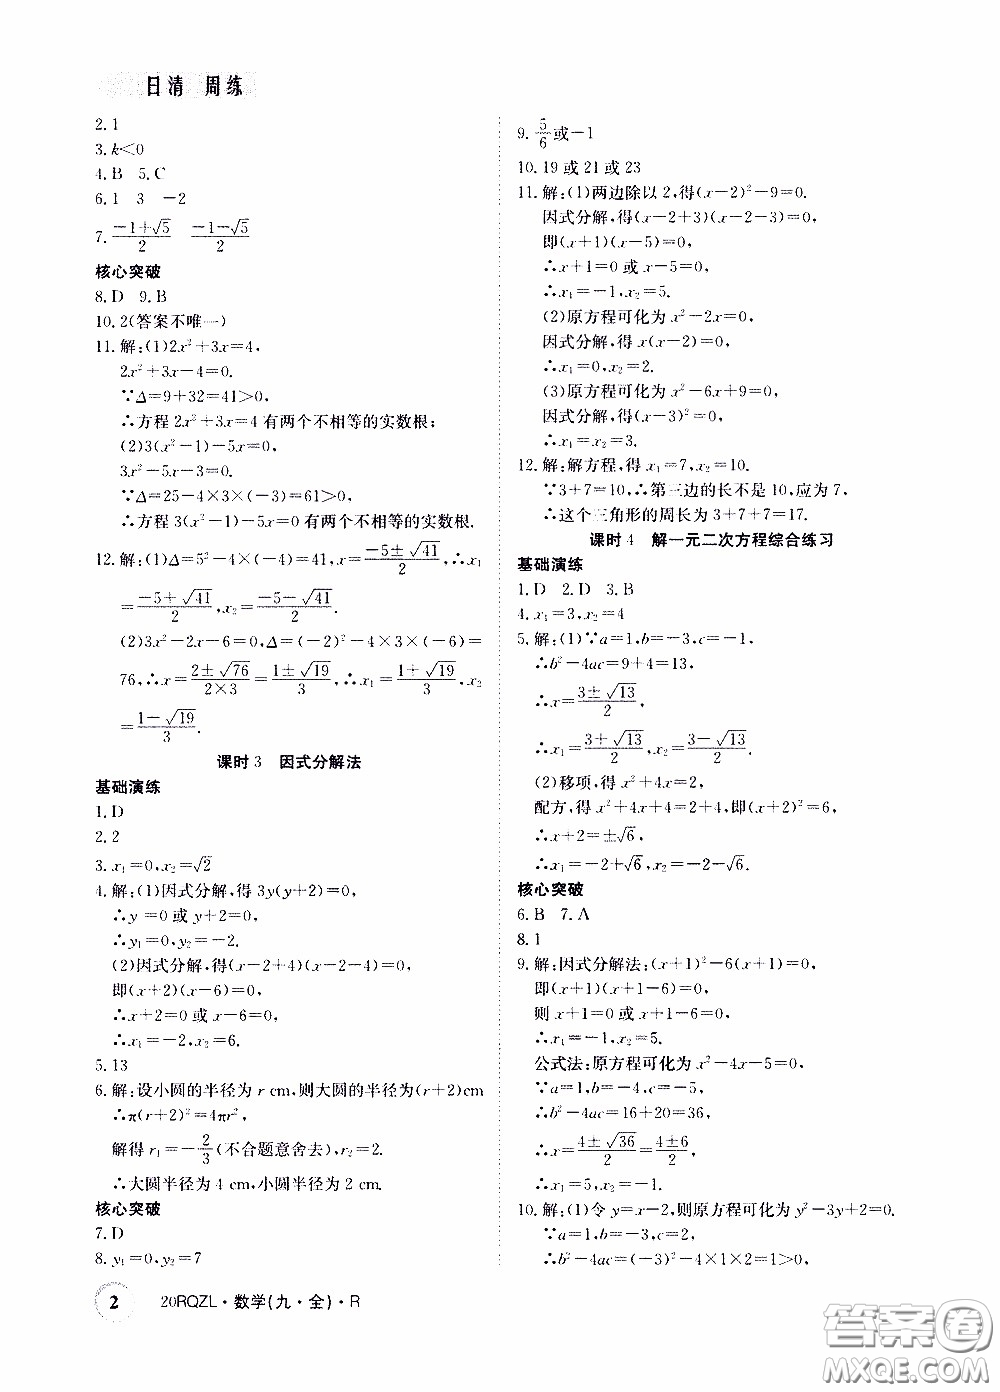 日清 周练
2. 1
3. k<0
4. B 5. C
6. 1 3 -2
7. \frac{-1+√5}{2} \frac{-1-√5}{2}
核心突破
8. D 9. B
10. 2(答案不唯一)
11. 解:(1)2x²+3x=4,
2x²+3x-4=0.
∵Δ=9+32=41>0,
∴方程 2x²+3x=4 有两个不相等的实数根;
(2)3(x²-1)-5x=0,
3x²-5x-3=0.
∵Δ=25-4×3×(-3)=61>0,
∴方程 3(x²-1)-5x=0 有两个不相等的实数根.
12. 解:(1)Δ=5²-4×(-4)=41, x=\frac{-5±√41}{2}, ∴x₁
=\frac{-5+√41}{2}, x₂=\frac{-5-√41}{2}.
(2)3x²-2x-6=0, Δ=(-2)²-4×3×(-6)=
76, ∴x=\frac{2±√76}{2×3}=\frac{1±√19}{3}, ∴x₁=\frac{1+√19}{3}, x₂
=\frac{1-√19}{3}.
课时 3 因式分解法
基础演练
1. D
2. 2
3. x₁=0, x₂=√2
4. 解:(1)因式分解,得 3y(y+2)=0,
∴y =0 或 y+2=0,
∴y₁=0, y₂=-2.
(2)因式分解,得(x-2+4)(x-2-4)=0,
即(x+2)(x-6)=0,
∴x+2=0 或 x-6=0,
∴x₁=-2, x₂=6.
5. 13
6. 解:设小圆的半径为 r cm,则大圆的半径为(r+2)cm
∴π(r+2)²=4πr²,
解得 r₁=-\frac{2}{3}(不合题意舍去), r₂=2.
∴大圆半径为 4 cm,小圆半径为 2 cm.
核心突破
7. D
8. y₁=0, y₂=7
2 20RQZL·数学(九·全)·R
9. \frac{5}{6}或-1
10. 19 或 21 或 23
11. 解:(1)两边除以 2,得(x-2)²-9=0.
因式分解,得(x-2+3)(x-2-3)=0,
即(x+1)(x-5)=0,
∴x+1=0 或 x-5=0,
∴x₁=-1, x₂=5.
(2)原方程可化为 x²-2x=0,
因式分解,得 x(x-2)=0,
∴x₁=0, x₂=2.
(3)原方程可化为 x²-6x+9=0,
因式分解,得(x-3)²=0,
∴x₁=x₂=3.
12. 解:解方程,得 x₁=7, x₂=10.
∵3+7=10, ∴第三边的长不是 10,应为 7,
∴这个三角形的周长为 3+7+7=17.
课时 4 解一元二次方程综合练习
基础演练
1. D 2. D 3. B
4. x₁=3, x₂=4
5. 解:(1)∵a=1, b=-3, c=-1,
∴b²-4ac=9+4=13,
∴x=\frac{3±√13}{2},
∴x₁=\frac{3+√13}{2}, x₂=\frac{3-√13}{2}.
(2)移项,得 x²+4x=2,
配方,得 x²+4x+4=2+4,即(x+2)²=6,
∴x+2=±√6,
∴x₁=-2+√6, x₂=-2-√6.
核心突破
6. B 7. A
8. 1
9. 解:因式分解法:(x+1)²-6(x+1)=0,
即(x+1)(x+1-6)=0,
则 x+1=0 或 x-5=0,
∴x₁=-1, x₂=5.
公式法:原方程可化为 x²-4x-5=0,
∵a=1, b=-4, c=-5,
∴b²-4ac=16+20=36,
∴x=\frac{4±√36}{2}=\frac{4±6}{2},
∴x₁=5, x₂=-1.
10. 解:(1)令 y=x-2,则原方程可化为 y²-3y+2=0.
∵a=1, b=-3, c=2,
∴b²-4ac=(-3)²-4×1×2=1>0,
答案圈
MXQE.COM